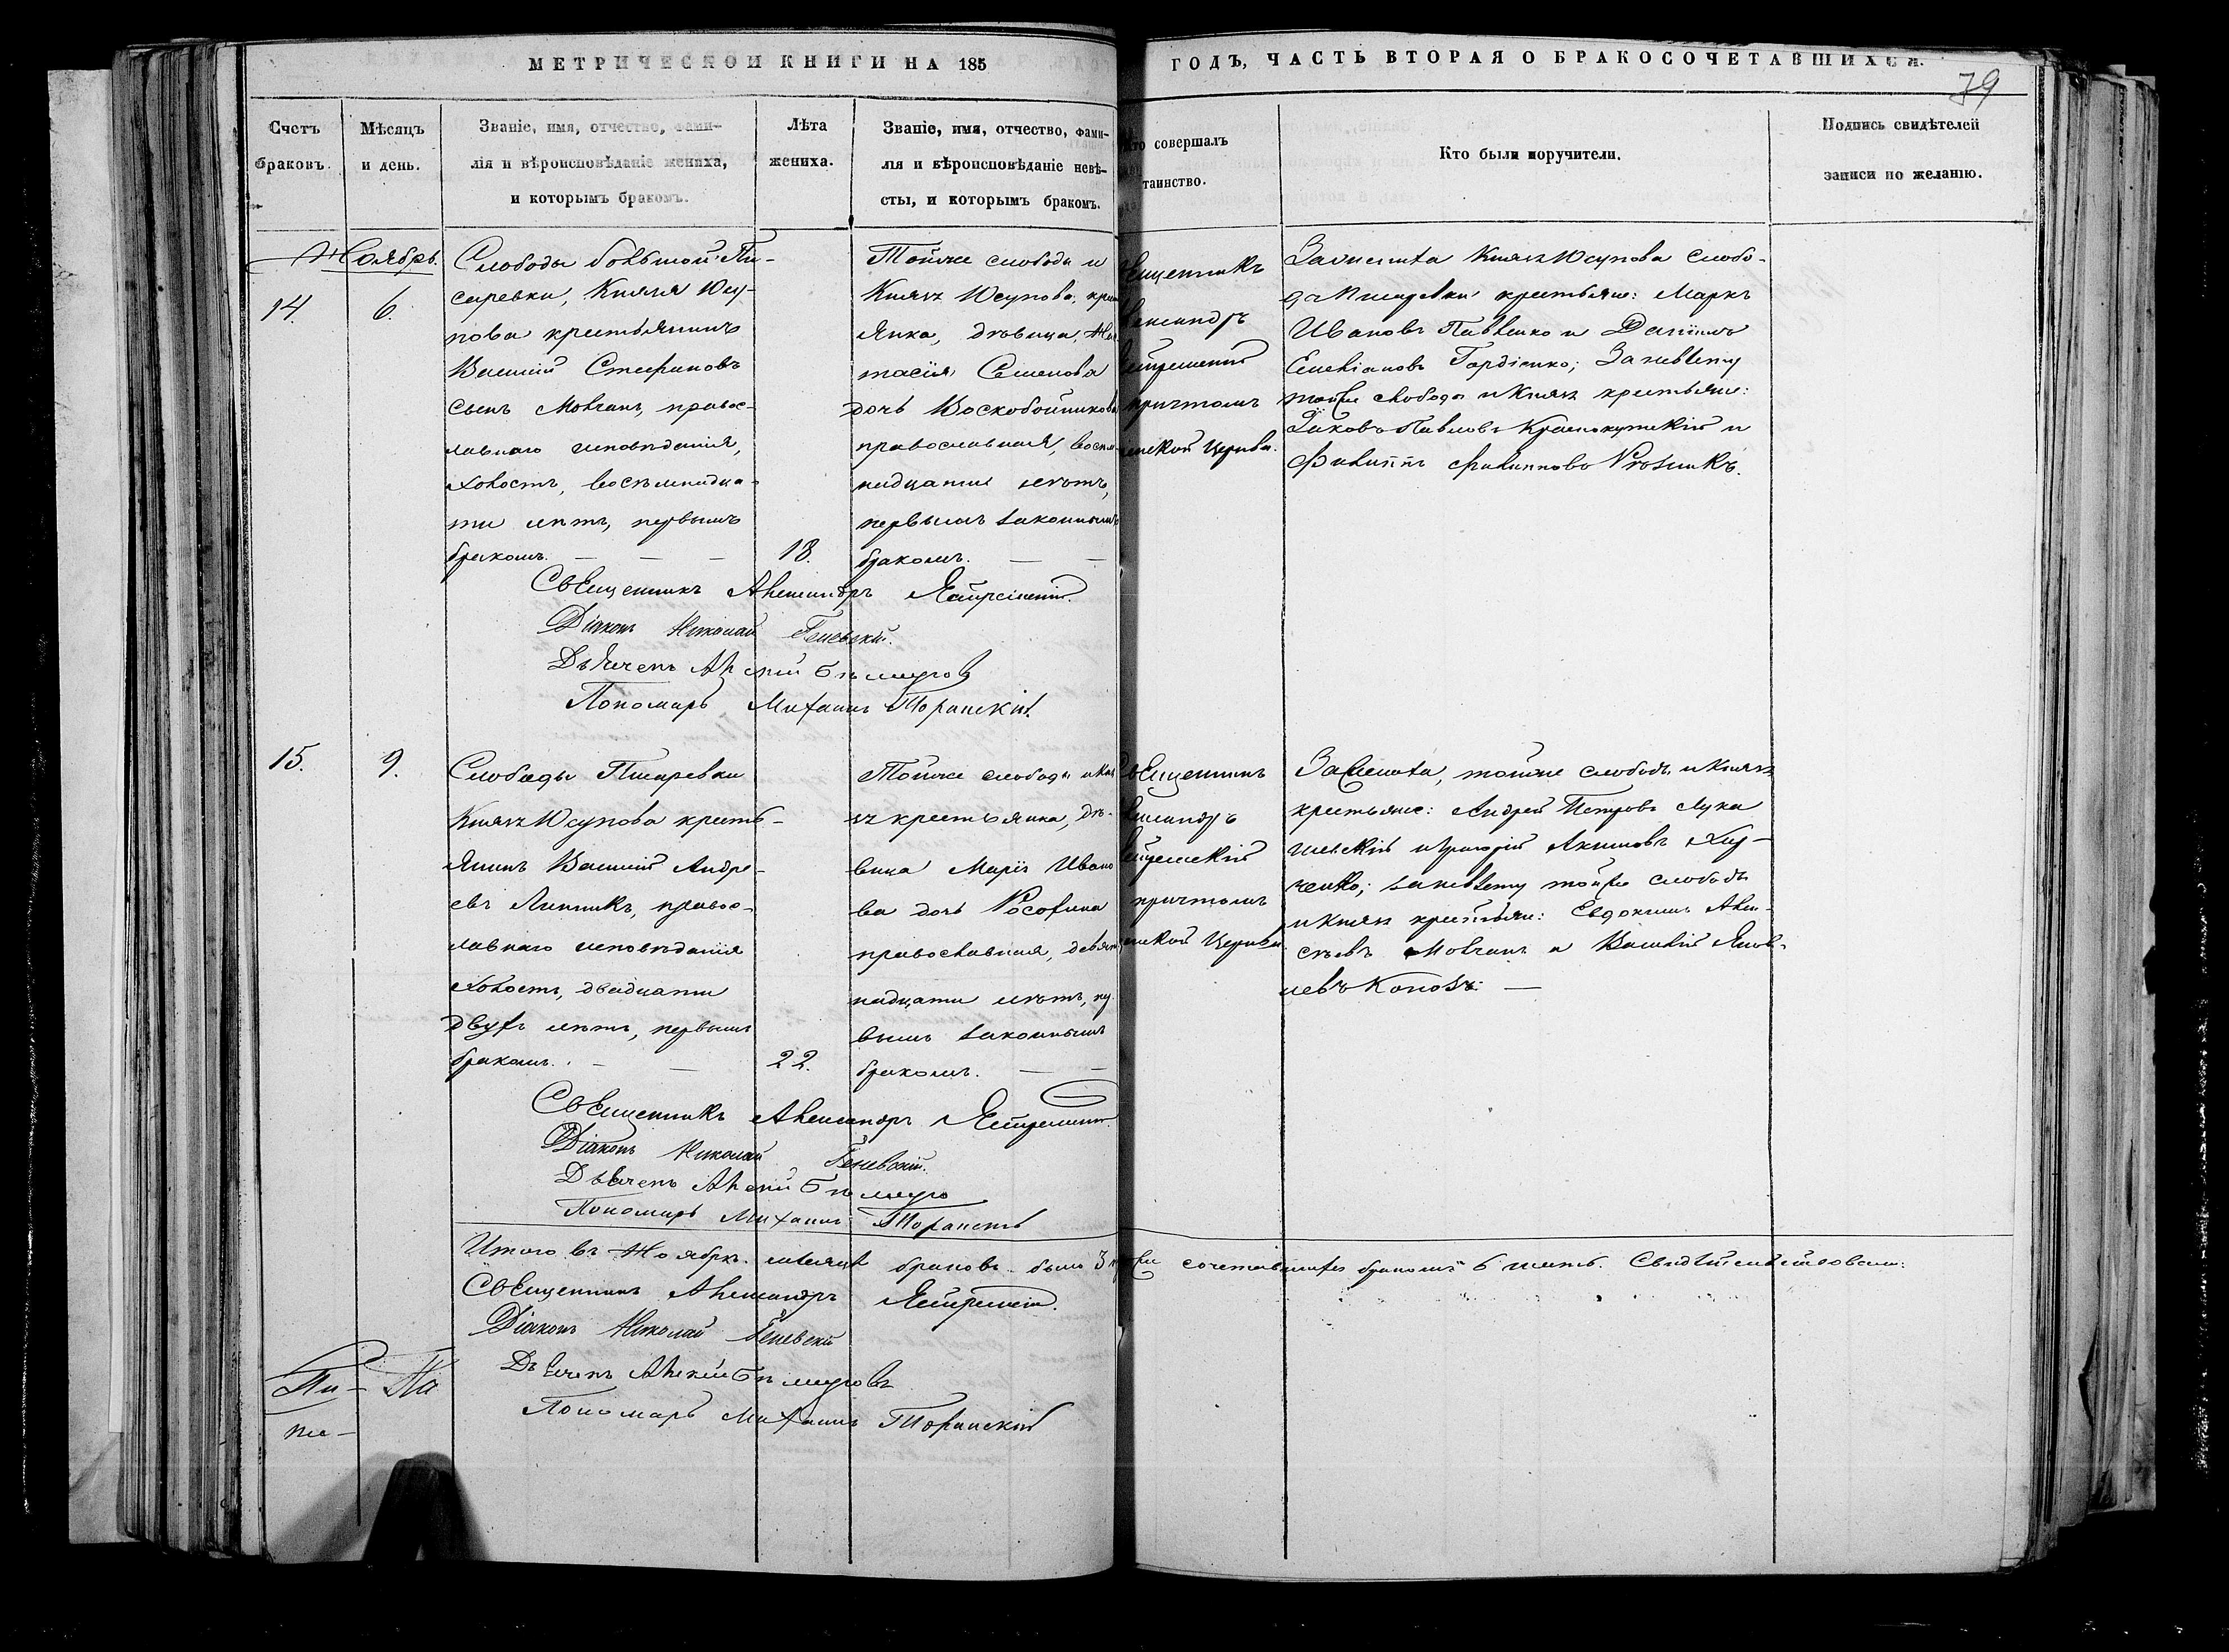 МЕТРИЧЕСКОЙ КНИГИ НА 185
ГОДЪ, ЧАСТЬ ВТОРАЯ О БРАКОСОЧЕТАВШИХСЯ.
79
Счетъ
браковъ.
Мѣсяцъ
и день.
Званіе, имя, отчество, фами-
лія и вѣроисповѣданіе жениха,
и которымъ бракомъ.
Лѣта
жениха.
Званіе, имя, отчество, фами-
лія и вѣроисповѣданіе невѣ-
сты, и которымъ бракомъ.
Кто совершалъ
таинство.
Кто были поручители.
Подпись свидѣтелей
записи по желанію.
Ноябрь.
14.
6.
Слободы большой Пи-
саревки, Князя Юсу-
пова крестьянинъ
Василій Стефановъ
сынъ Мовчанъ, правос-
лавнаго исповѣданія,
холостъ, восемнадца-
ти лѣтъ, первымъ
бракомъ.
18.
Тойже слободы и
Князя Юсупова, крест
янка, дѣвица,
тасія Семенова
дочь Воскобойникова
православная, восем-
надцати лѣтъ,
первымъ законнымъ
бракомъ.
Священникъ
Александръ
Ястремскій
причтомъ
Церкви.
За жениха Князя Юсупова слобо-
ды Писаревки крестьяне: Маркъ
Ивановъ Павленко и Даніилъ
Емельяновъ Гордіенко; За невѣсту
тойже слободы и Князя крестьяне:
Яковъ Павловъ Краснокутскій и
Филиппъ Филипповъ
Священникъ Александръ Ястремскій.
Діаконъ Николай Геневскій.
Дьячекъ Алексій
Пономарь Михаилъ Торанскій.
15.
9.
Слободы Писаревки
Князя Юсупова кресть-
янинъ Василій Андре-
евъ Линникъ, правос-
лавнаго исповѣданія
холостъ, двадцати
двухъ лѣтъ, первымъ
бракомъ.
22.
Тойже слободы и Кня
зя крестьянка, дѣ-
вица Марія Ивано
ва дочь Росохина
православная, девят
надцати лѣтъ, пер
вымъ законнымъ
бракомъ.
Священникъ
Александръ
Ястремскій
причтомъ
Церкви.
За жениха, тойже слободы и Князя
крестьяне: Андрей Петровъ Лука
шевскій и Григорій Акимовъ
ченко; за невѣсту тойже слободы
и Князя крестьяне: Евдокимъ Алек-
сѣевъ Мовчанъ и Василій Яков-
левъ
Священникъ Александръ Ястремскій
Діаконъ Николай Геневскій.
Дьячекъ Алексій
Пономарь Михаилъ Торанскій
Итого въ Ноябрѣ мѣсяцѣ браковъ было 3 сочетавшихся бракомъ 6 Свидѣтельствовали:
Священникъ Александръ Ястремскій.
Діаконъ Николай Геневскій
Дьячекъ Алексій
Пономарь Михаилъ Торанскій